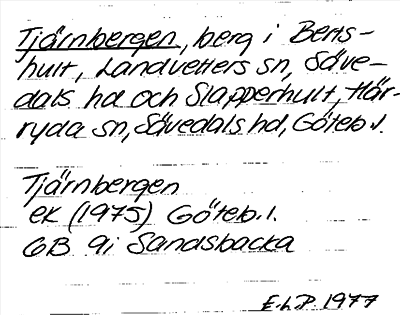 Tjärnbergen, berg i Berts-
hult, Landvetters sn, Säve-
dals hd och Slapperhult, Här-
ryda sn, Sävedals hd, Göteb.l.
Tjärnbergen
ek (1975) Göteb.l.
6B 9i Sandsbacka
E.L.P. 1977